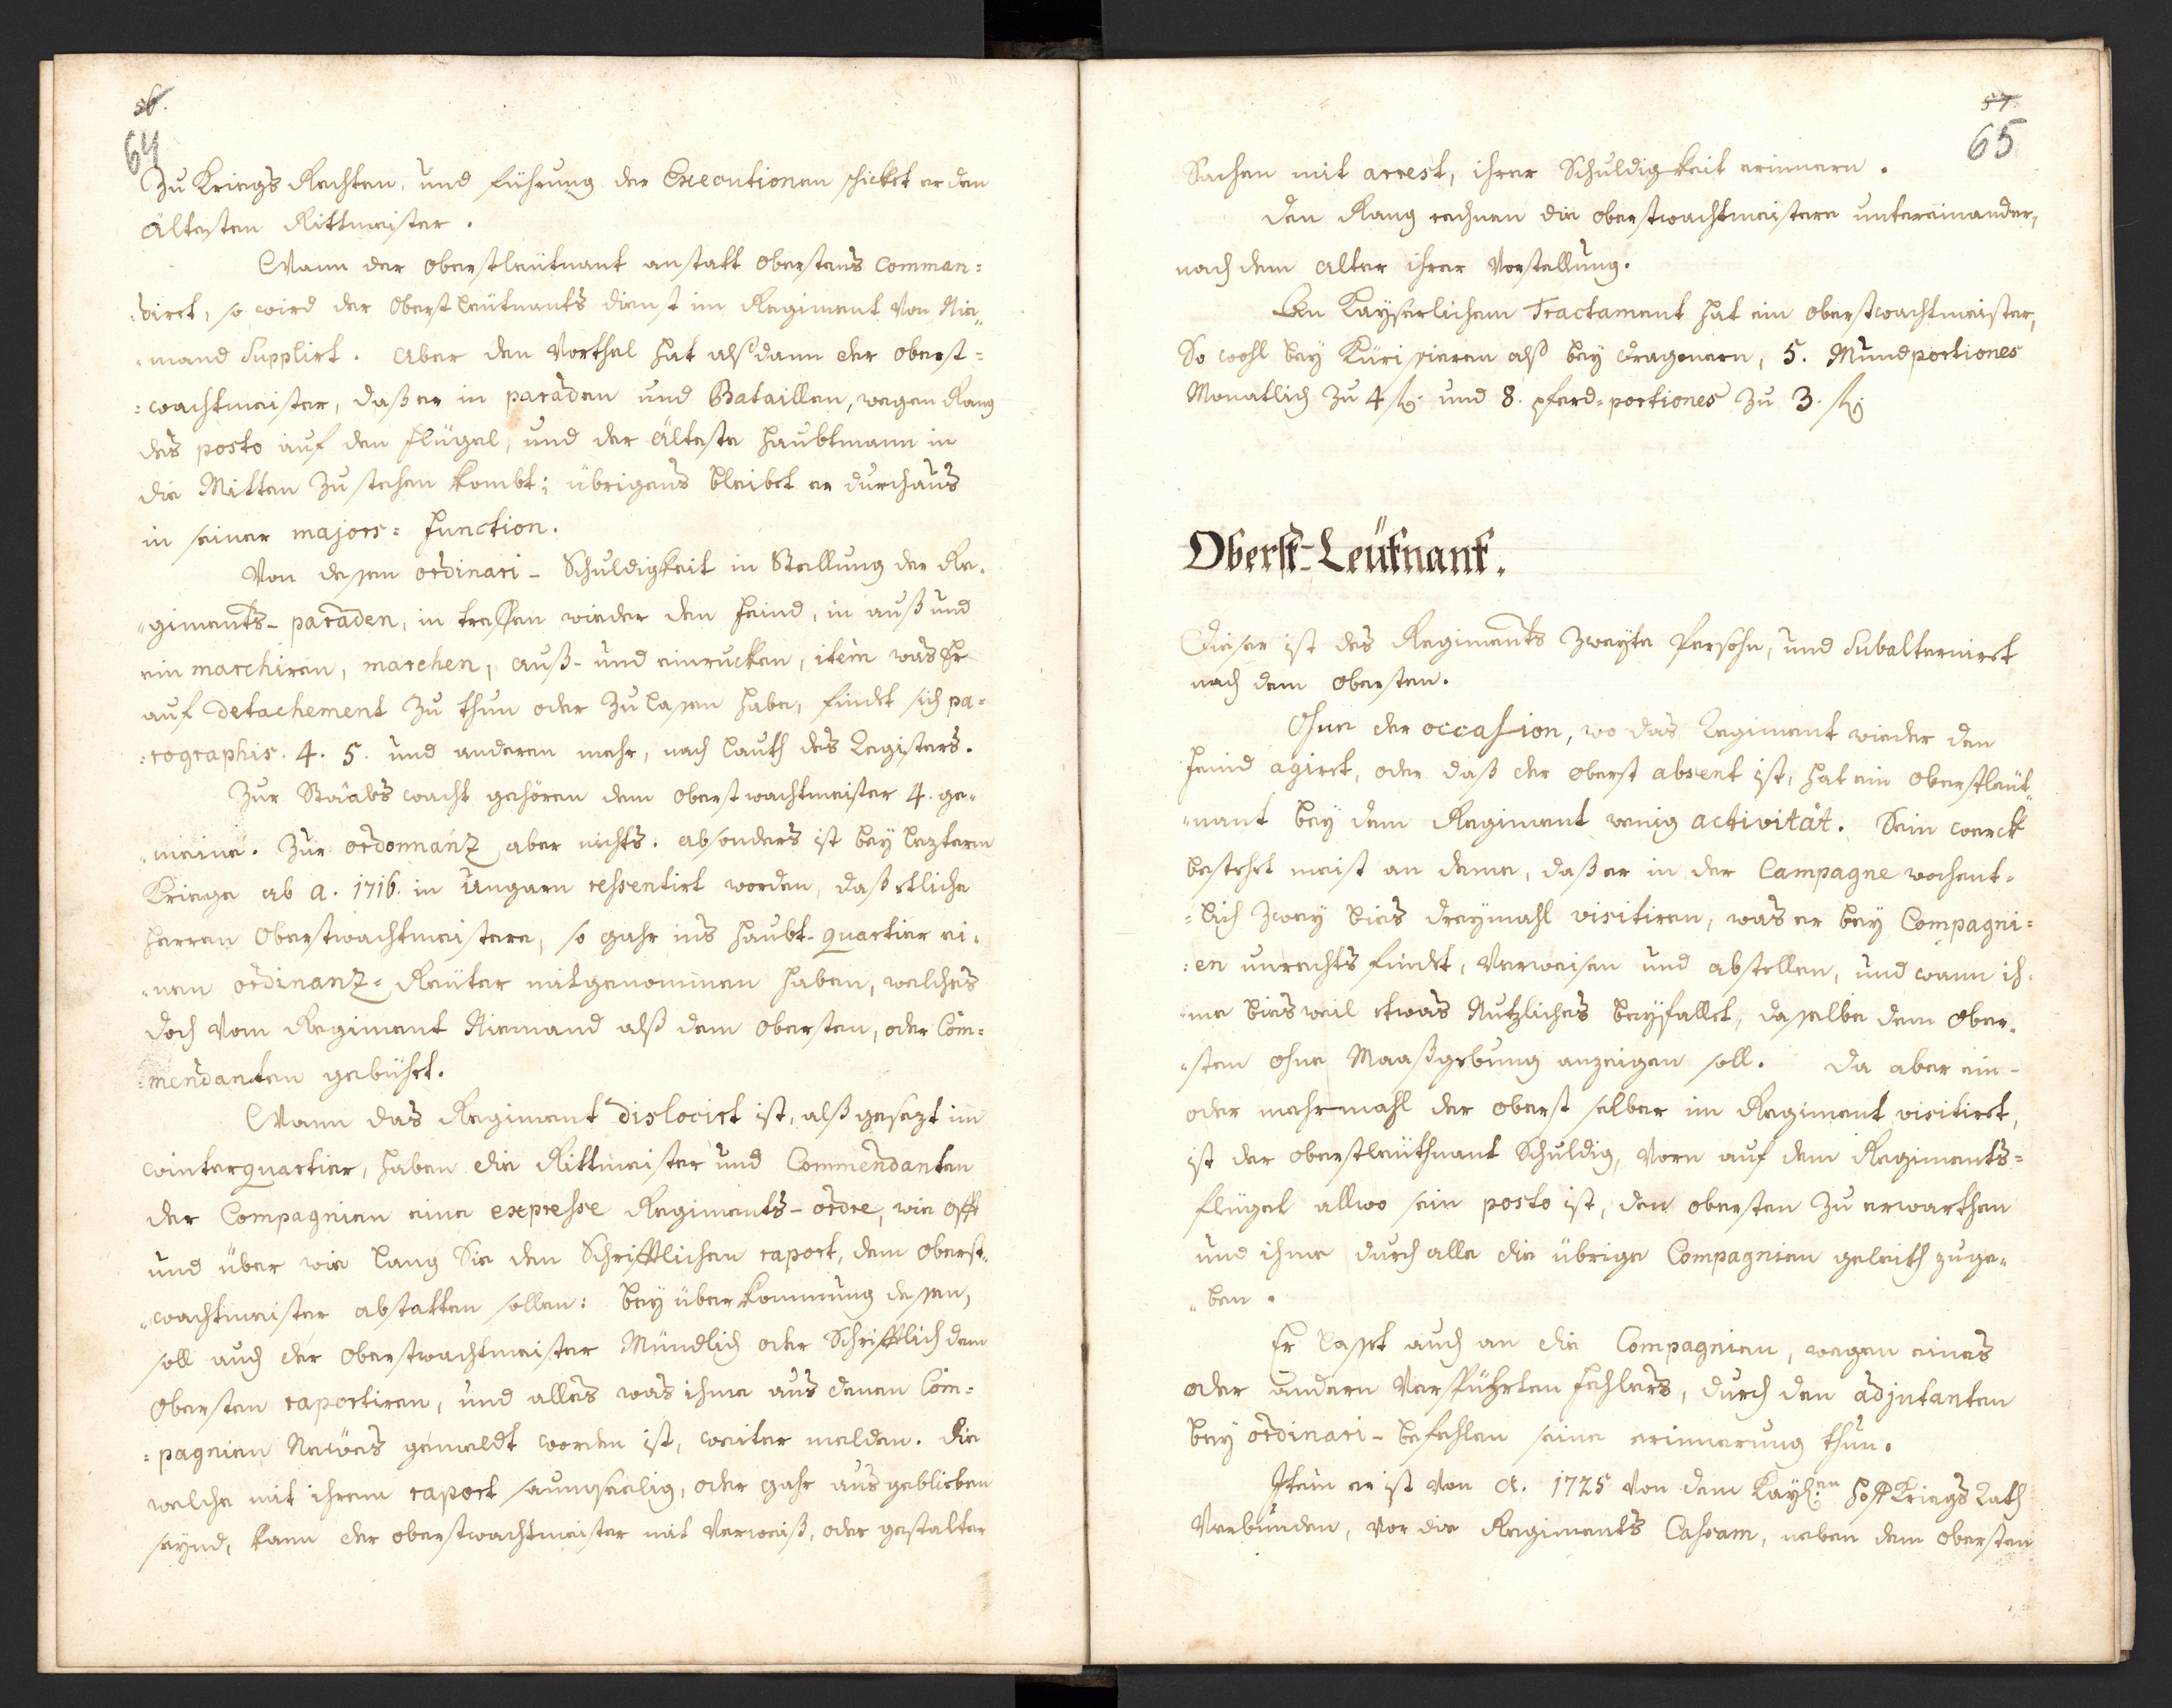 56.
64
Zu Kriegs Rechten, und führung der Executionen schicket er den
Ältesten Rittmeister.
Wann der Oberstleütnant anstatt Obersteus comman=
:dirct, so wird der Oberstleütnants dienst im Regiment Von Nie„
„mand Supplirt. Aber den Vorthel hat alß dann der Oberst=
:wachtmeister, daß er in paraden und Bataillen, wegen Rang
des posto auf den flügel, und der Älteste Haubtmann in
die Mitten Zu stehen kombt; übrigens bleibet er durchaus
in seiner majors= function.
Von dessen ordinari- Schuldigkeit in Stellung der Re„
„giments- paraden, in treffen wieder den feind, in auß und
ein marchiren, marchen, auß- und einrucken, item was Er
auf Detachement Zu thun oder Zu lassen habe, findt sich pa=
:rographis. 4. 5. und anderen mehr, nach lauth des Registers.
Zur Staabs wacht gehören dem Oberstwachtmeister 4. ge„
„meine. Zur ordonnanz aber nichts. absonders ist bey leztern
Kriege ab a. 1716. in Ungarn ressentirt worden, daß etliche
Herren Oberstwachtmeistere, so gahr ins Haubt-quartier ei„
„nen ordinanz= Reüter mitgenommen haben, welches
doch Vom Regiment Niemand alß dem Obersten, oder Com=
:mendanten gebührt.
Wann das Regiment dislocirt ist, alß gesezt im
winterquartier, haben die Rittmeister und Commendanten
der Compagnien eine expresse Regiments-ordre, wie offt
und über wie lang Sie den Schrifftlichen raport, dem Oberst„
„wachtmeister abstatten sollen: bey überkommung dessen,
soll auch der Oberstwachtmeister Mündlich oder Schrifftlich dem
Obersten raportiren, und alles was ihme aus denen Com=
:pagnien Newes gemeldt worden ist, weiter melden. die
welche mit ihrem raport saumseelig, oder gahr ausgeblieben
seynd, kann der Oberstwachtmeister mit Verweiß, oder gestalter
57.
65
Sachen mit arrest, ihrer Schuldigkeit erinnern.
den Rang rechnen die Oberstwachtmeistere untereinander,
nach dem Alter ihrer Vorstellung.
An Kayserlichem Tractament hat ein Oberstwachtmeister,
So wohl bey Kürissieren alß bey dragonern, 5. Mundportiones
Monatlich Zu 4 fl. und 8. pferd=portiones Zu 3. fl.
Oberst-Leütnant.
Dieser ist des Regiments Zweyte Persohn, und Subalternirct
nach dem Obersten.
Ohne der occassion, wo das Regiment wieder den
feind agirct, oder daß der Oberst absent ist, hat ein Oberstleüt„
„nant bey dem Regiment wenig activität. Sein werck
bestehet meist an deme, daß er in der Campagne wochent=
=lich Zwey bies dreymahl visitiren, was er bey Compagni=
:en unrechts findt, Verweisen und abstellen, und wann ih„
„me biesweil etwas Nutzliches beyfallet, dasselbe dem Ober„
„sten ohne Maaßgebung anzeigen soll. Da aber ein-
oder mehrmahl der Oberst selber im Regiment visitirct,
ist der Oberstleüthnant Schuldig, Vorn auf dem Regiments=
flügel allwo sein posto ist, den Obersten Zu erwarthen
und ihme durch alle die übrige Compagnien geleith zuge„
„ben.
Er lasset auch an die Compagnien, wegen eines
oder andern Verspührten fehlers, durch den adjutanten
bey ordinari-befehlen seine erinnerung thun.
Item er ist Von A. 1725 Von dem Kayl:en HoffKriegsRath
Verbunden, Vor die Regiments Cassam, neben dem Obersten